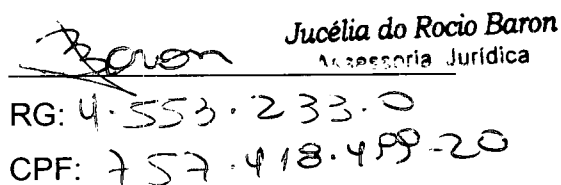 Jucélia do Rocio Baron
Assessoria Jurídica
Baron
RG: 4.553.233.0
CPF: 757.418.499-20